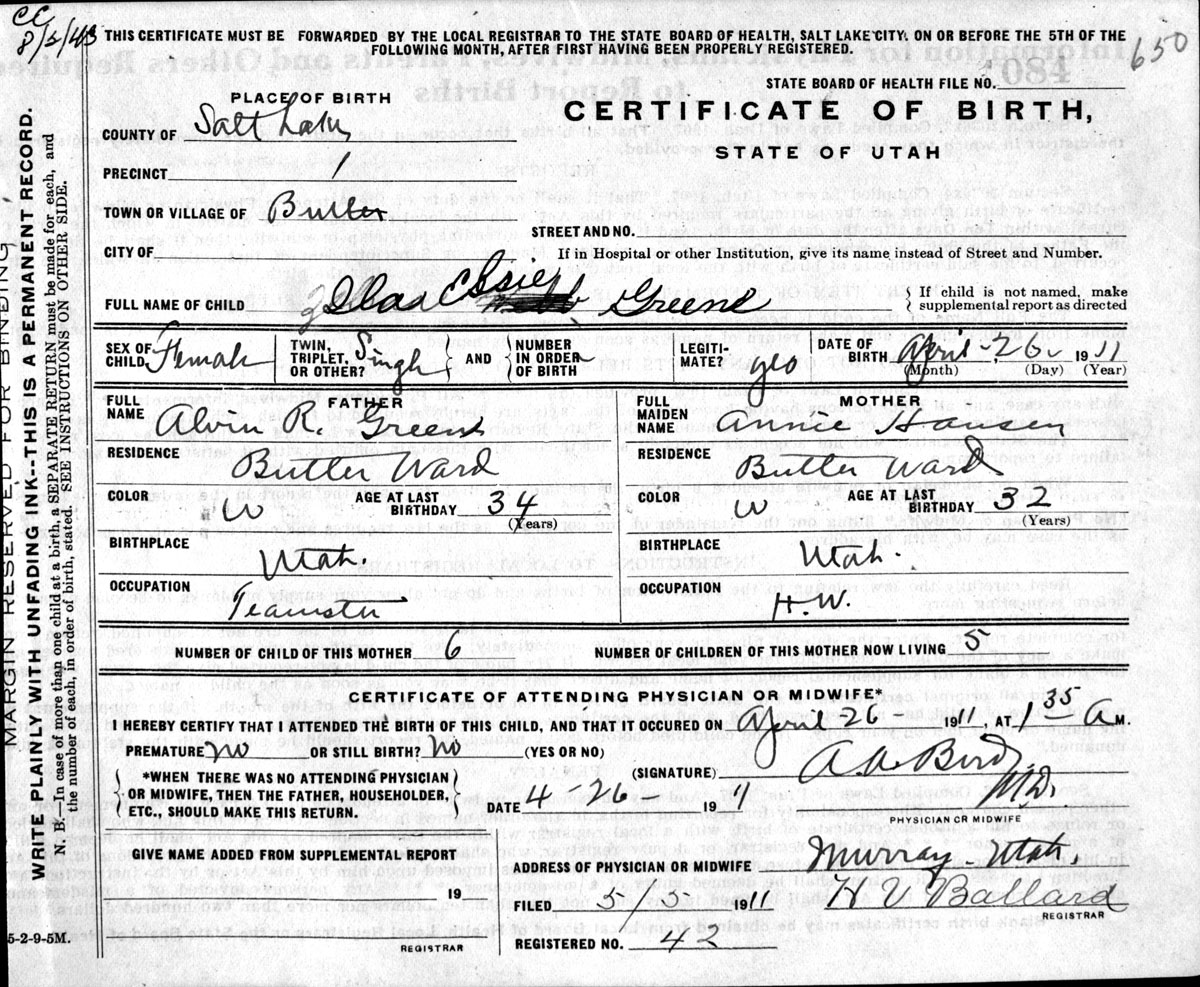 CC
8/2/43
650
THIS CERTIFICATE MUST BE FORWARDED BY THE LOCAL REGISTRAR TO THE STATE BOARD OF HEALTH, SALT LAKE CITY, ON OR BEFORE THE 5TH OF THE
FOLLOWING MONTH, AFTER FIRST HAVING BEEN PROPERLY REGISTERED.
STATE BOARD OF HEALTH FILE NO.
PLACE OF BIRTH
CERTIFICATE OF BIRTH,
STATE OF UTAH
COUNTY OF Salt Lake
PRECINCT 1
TOWN OR VILLAGE OF Butler
STREET AND NO.
CITY OF
If in Hospital or other Institution, give its name instead of Street and Number.
FULL NAME OF CHILD Greene
{ If child is not named, make
supplemental report as directed
SEX OF CHILD Female
TWIN, TRIPLET, OR OTHER? Single } AND { NUMBER IN ORDER OF BIRTH
LEGITIMATE? yes
DATE OF BIRTH April 26 1911
(Month) (Day) (Year)
FATHER
FULL NAME Alvin R. Greene
RESIDENCE Butler Ward
COLOR W AGE AT LAST BIRTHDAY 34
(Years)
BIRTHPLACE Utah.
OCCUPATION Teamster
MOTHER
FULL MAIDEN NAME Annie Hansen
RESIDENCE Butler Ward
COLOR W AGE AT LAST BIRTHDAY 32
(Years)
BIRTHPLACE Utah.
OCCUPATION H.W.
NUMBER OF CHILD OF THIS MOTHER 6 NUMBER OF CHILDREN OF THIS MOTHER NOW LIVING 5
CERTIFICATE OF ATTENDING PHYSICIAN OR MIDWIFE*
I HEREBY CERTIFY THAT I ATTENDED THE BIRTH OF THIS CHILD, AND THAT IT OCCURED ON April 26 1911, AT 1 35 A M.
PREMATURE no IF STILL BIRTH? no (YES OR NO)
{ *WHEN THERE WAS NO ATTENDING PHYSICIAN
OR MIDWIFE, THEN THE FATHER, HOUSEHOLDER,
ETC., SHOULD MAKE THIS RETURN. }
(SIGNATURE) A. A. Bird, M.D.
DATE 4-26 1911
PHYSICIAN OR MIDWIFE
GIVE NAME ADDED FROM SUPPLEMENTAL REPORT
19
REGISTRAR
ADDRESS OF PHYSICIAN OR MIDWIFE Murray-Utah.
FILED 1911 Ballard
REGISTRAR
REGISTERED NO. 42
5-2-9-5M.
MARGIN RESERVED FOR BINDING
WRITE PLAINLY WITH UNFADING INK--THIS IS A PERMANENT RECORD.
N. B.—In case of more than one child at a birth, a SEPARATE RETURN must be made for each, and
the number of each, in order of birth, stated. SEE INSTRUCTIONS ON OTHER SIDE.